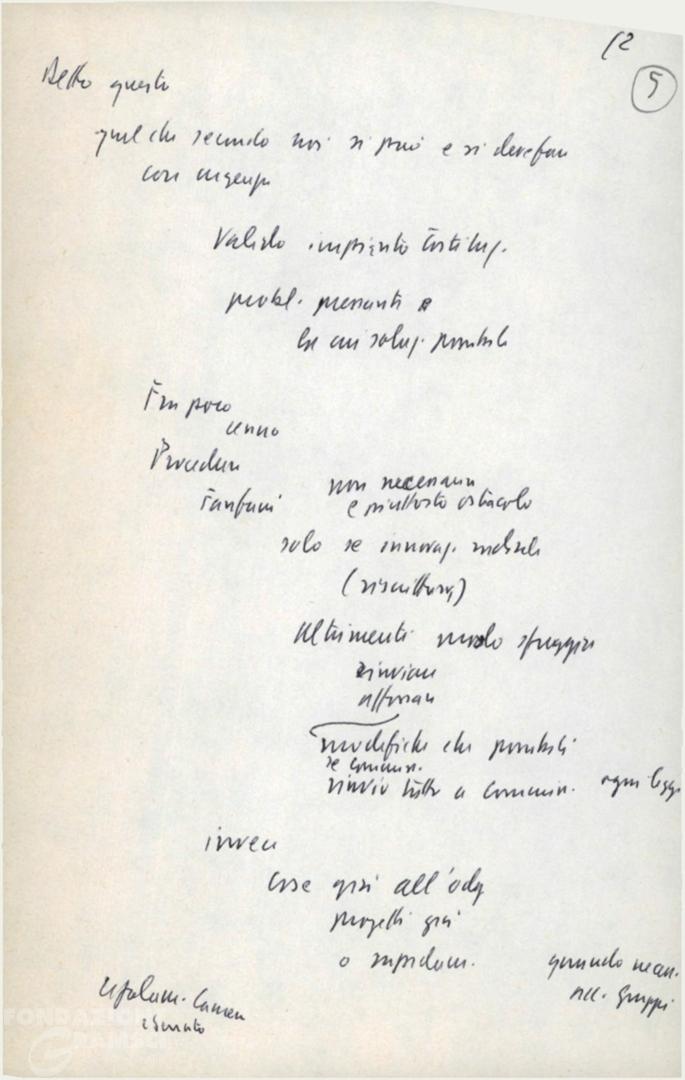 12
5
Detto questo
quel che secondo noi si può e si deve fare
con urgenza
Valido impianto costituz.
probl. pressanti
la cui soluz. possibile
Fra poco
cenno
Procedura
Fanfani
non necessaria
e piuttosto ostacolo
solo se innovaz. radicale
(riscrittura)
Altrimenti modo sfuggire
rinviare
affossare
modifiche che possibili
se commiss.
rinvio tutto a commiss. ogni legge
invece
cose già all'odg
progetti già
o rapidam. quando necess.
Gruppi
Regolam. Camera
e Senato
FONDAZIONE
GRAMSCI